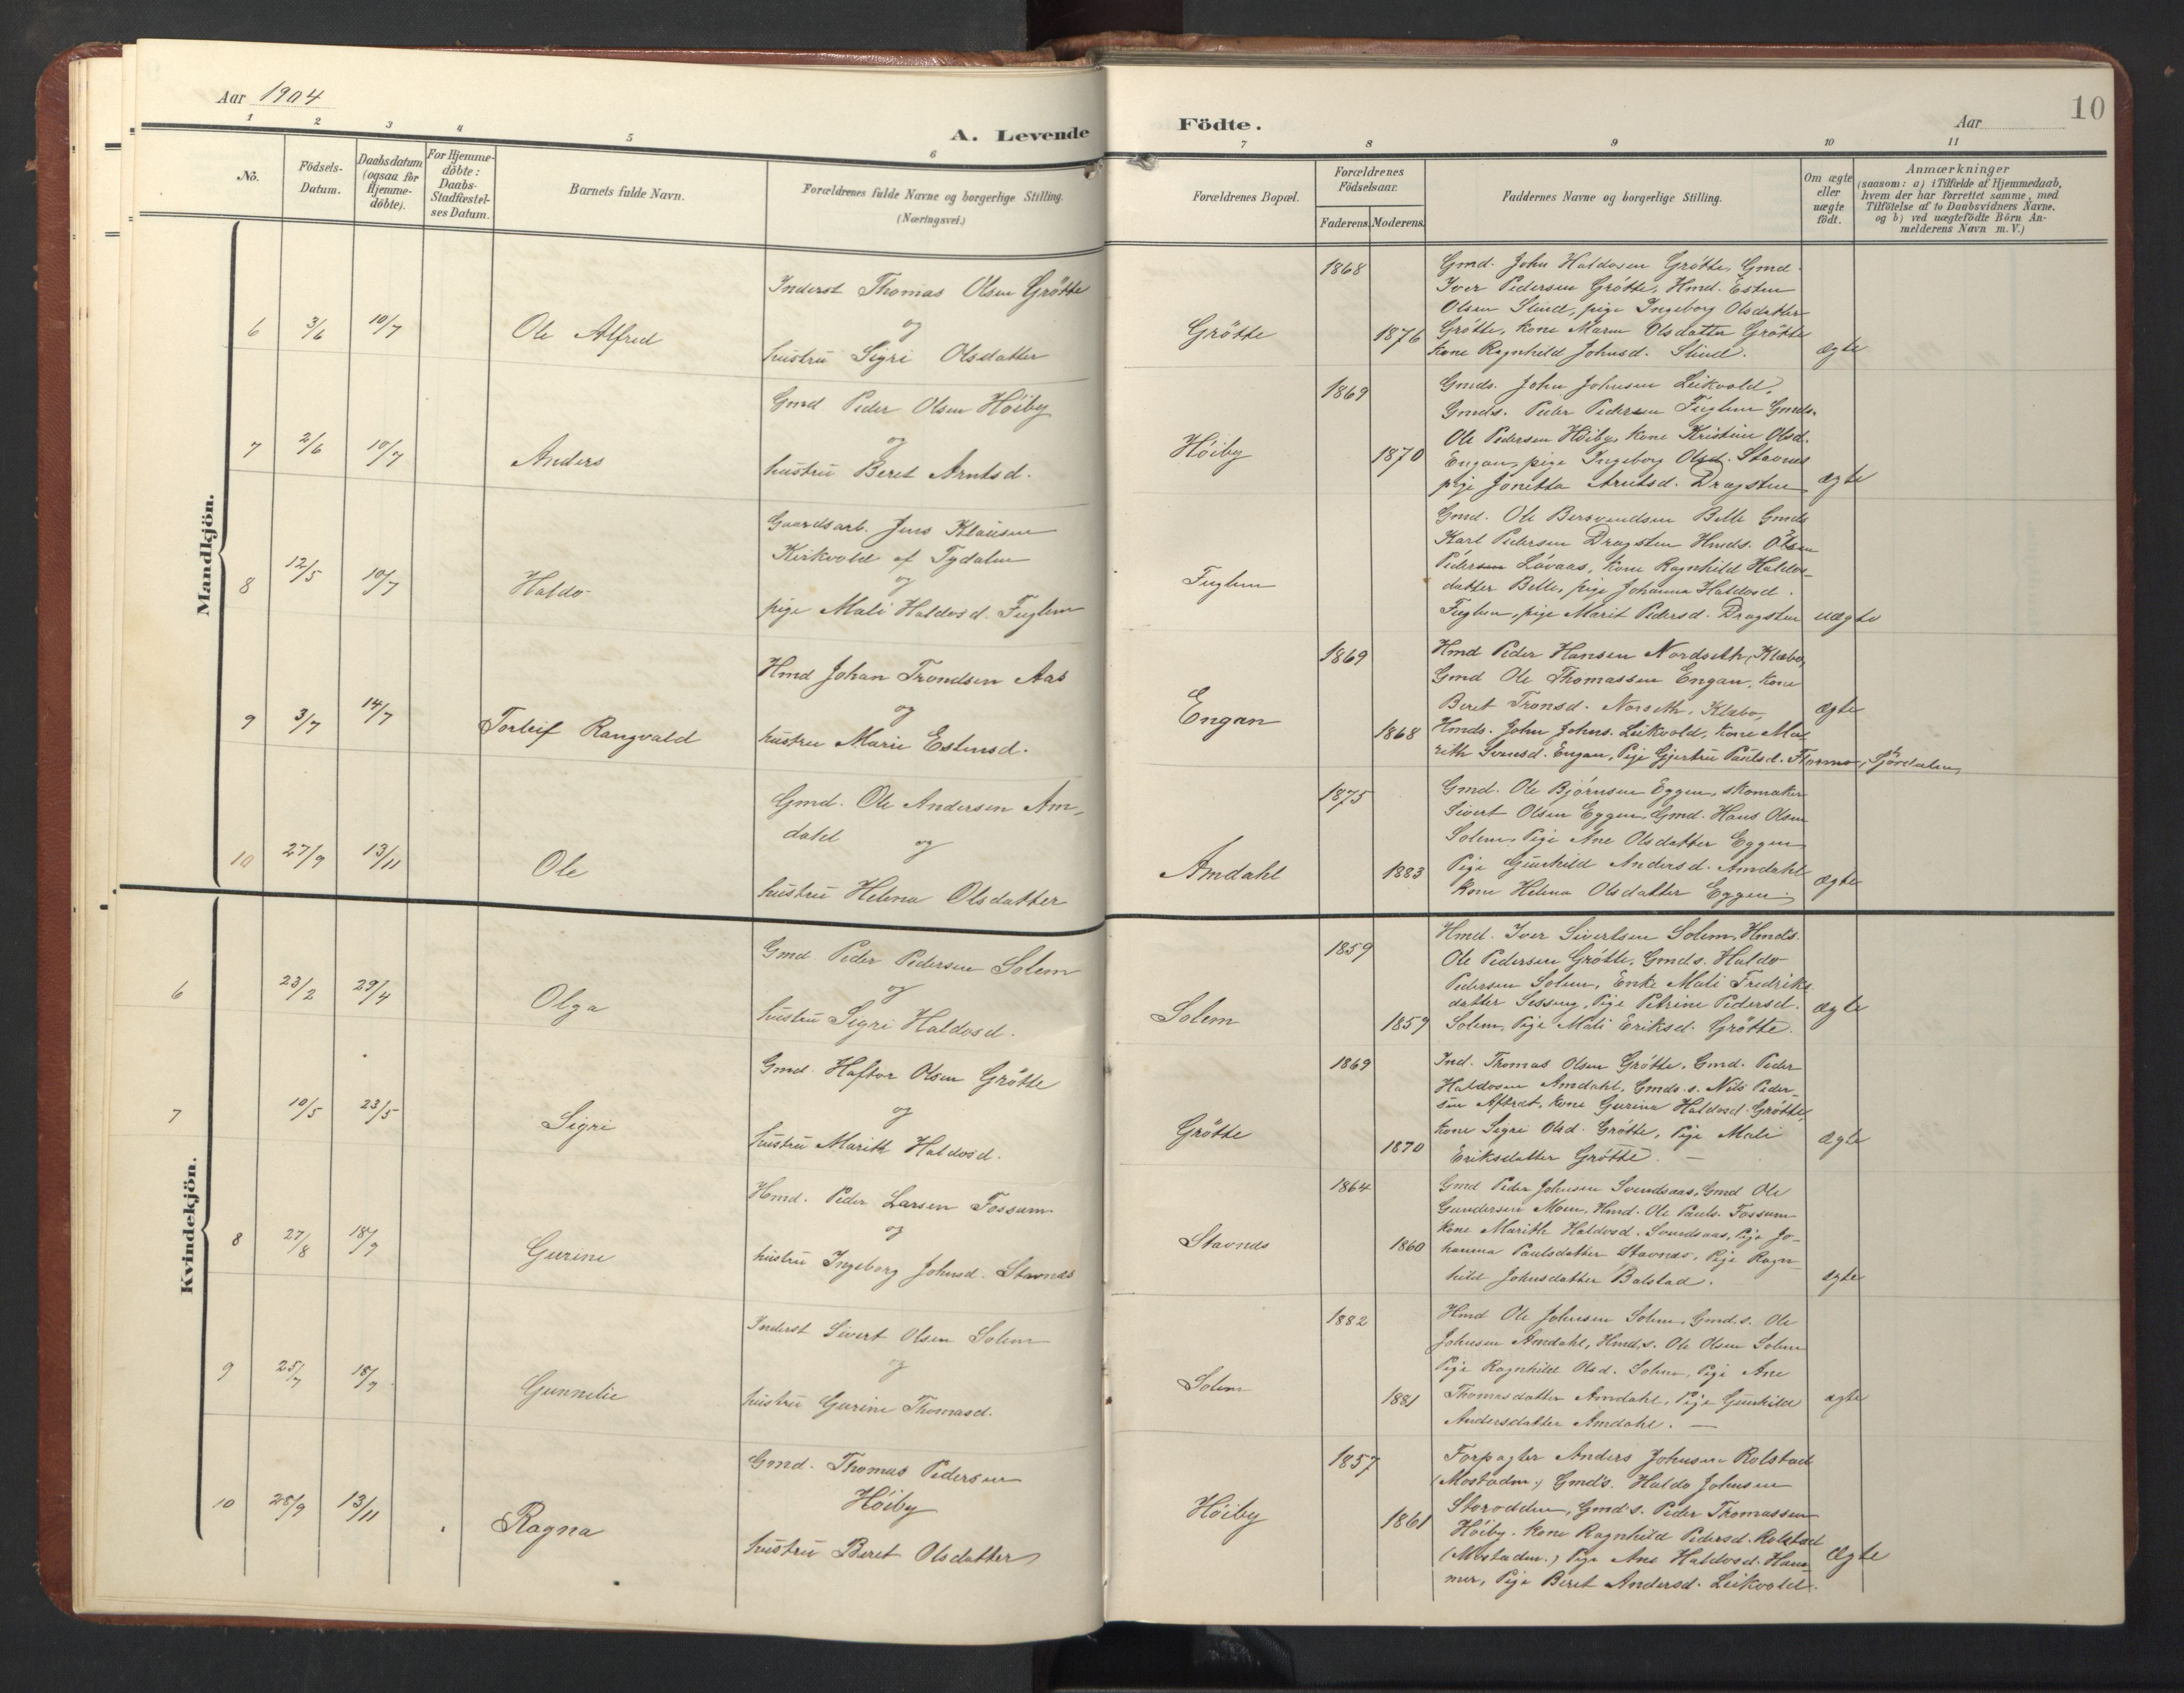 Aar 1904
A. Levende
1 2 3 4 5 6
No. Födsels-Datum. Daabsdatum (ogsaa for Hjemme-döbte). For Hjemme-döbte: Daabs-Stadfæstel-ses Datum. Barnets fulde Navn. Forældrenes fulde Navne og borgerlige Stilling. (Næringsvei.)
Mandkjön.
Inderst Thomas Olsen Grötte
og
6 3/6 10/7 Ole Alfred
hustru Sigri Olsdatter
Gmd Peder Olsen Höiby
og
7 2/6 10/7 Anders
hustru Beret Arntsd.
Gaardsarb. Jens Klausen
Kirkvold af Tydalen
og
8 12/5 10/7 Haldo
pige Mali Haldosd. Fuglem
Hmd Johan Trondsen Aas
og
9 3/7 14/7 Torleif Rangvald
hustru Marie Estensd.
Gmd. Ole Andersen Am-
dahl og
10 27/9 13/11 Ole
hustru Helena Olsdatter
Kvindekjön.
Gmd Peder Pedersen Solem
og
6 23/2 29/4 Olga
hustru Sigri Haldosd.
Gmd. Haftor Olsen Grötte
og
7 10/5 23/5 Sigri
hustru Marith Haldosd.
Hmd. Peder Larsen Fossum
og
8 27/8 18/9 Gurine
hustru Ingeborg Johnsd. Stavnäs
Inderst Sivert Olsen Solem
og
9 25/7 18/9 Gunnelie
hustru Gurine Thomasd.
Gmd. Thomas Pedersen
Höiby
10 28/9 13/11 Ragna
hustru Beret Olsdatter
10
Födte.
Aar
7 8 9 10 11
Forældrenes Bopæl. Forældrenes Födselsaar. Faderens. Moderens. Faddernes Navne og borgerlige Stilling. Om ægte eller uægte födt.
Anmærkninger
(saasom: a) i Tilfælde af Hjemmedaab,
hvem der har forrettet samme, med
Tilföielse af to Daabsvidners Navne.
og b) ved uægtefödte Börn An-
melderens Navn m. V.)
1868 Gmd. John Haldosen Grötte, Gmd.
Iver Pedersen Grötte, Hmd. Esten
Olsen Stind, pige Ingeborg Olsdatter
Grötte 1876 Grötte, kone Maren Olsdatter Grötte
kone Ragnhild Johnsd. Stind. ægte
1869 Gmds. John Johnsen Leikvold,
Gmds. Peder Pedersen Fuglem Gmds.
Ole Pedersen Höiby, kone Kristine Olsd.
Höiby 1870 Engan, pige Ingeborg Olsd. Stavnes
pige Jonetta Arntsd. Dragsten ægte
Gmd. Ole Bersvendsen Belle Gmds
Karl Pedersen Dragsten Hmds. Olsen
Fuglem Pedersen Lövaas, kone Ragnhild Haldos-
datter Belle, pige Johanna Haldosd.
Fuglem, pige Marit Pedersd. Dragsten uægte
1869 Hmd Peder Hansen Nordseth, Klæbo,
Gmd Ole Thomassen Engan, kone
Engan Beret Tronsd. Norseth, Klæbo, ægte
1868 Hmds. John Johns. Leikvold, kone Ma-
rith Svensd. Engan, Pige Gjertru Paulsd. Flormo, Stjördalen
1875 Gmd. Ole Björnsen Eggen, skomaker
Sivert Olsen Eggen, Gmd. Hans Olsen
Solem, Pige Ane Olsdatter Eggen
Amdahl 1883 Pige Gunhild Andersd. Amdahl
kone Helena Olsdatter Eggen ægte
1859 Hmd. Iver Sivertsen Solem, Hmds.
Ole Pedersen Grötte, Gmds. Haldo
Pedersen Solem, Enke Mali Fredriks-
datter Sesseng, Pige Petrine Pedersd. ægte
Solem 1859 Solem, Pige Mali Eriksd. Grötte.
1869 Ind. Thomas Olsen Grötte, Gmd. Peder
Haldosen Amdahl, Gmds. s. Nils Peder-
sen Aftret, kone Gurina Haldosd. Grötte,
Grötte kone Sigri Olsd. Grötte, Pige Mali ægte
1870 Eriksdatter Grötte. —
1864 Gmd Peder Johnsen Svendsaas, Gmd Ole
Gundersen Moen, Hmd. Ole Pauls. Fossum
Stavnds kone Marith Haldosd. Svendsaas, Pige Jo-
1860 hanna Paulsdatter Stavnäs, Pige Ragn-
hild Johnsdatter Balstad. ægte
1882 Hmd Ole Johnsen Solem, Gmd.s. Ole
Johnsen Amdahl, Hmd.s. Ole Olsen Solem
Solem Pige Ragnhild Olsd. Solem, Pige Ane
1881 Thomasdatter Amdahl, Pige Gunhild ægte
Andersdatter Amdahl. —
1857 Forpagter Anders Johnsen Rolstad
(Mostadm.) Gmd's. Haldo Johnsen
Storodden, Gmd's. Peder Thomassen
Höiby 1861 Höiby. kone Ragnhild Pedersd. Rolstad
(Mostadm.) Pige Ane Haldosd. Ham- ægte
mer, Pige Beret Andersd. Leikvold.